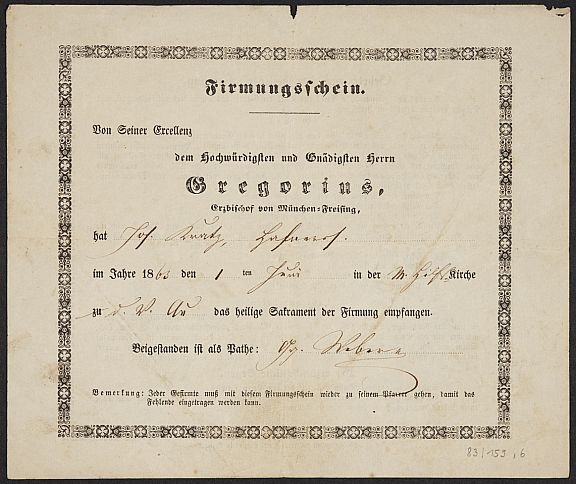 Firmungsschein.
Von Seiner Excellenz
dem Hochwürdigsten und Gnädigsten Herrn
Gregorius,
Erzbischof von München-Freising,
hat Jos. Kratz, Hafners.
im Jahre 1863 den 1 ten Juni in der M. Hilf-Kirche
zu d. V. Au das heilige Sakrament der Firmung empfangen.
Beigestanden ist als Pathe: Gg. Weber
Bemerkung: Jeder Gefirmte muß mit diesem Firmungsschein wieder zu seinem Pfarrer gehen, damit das
Fehlende eingetragen werden kann.
83/153,6